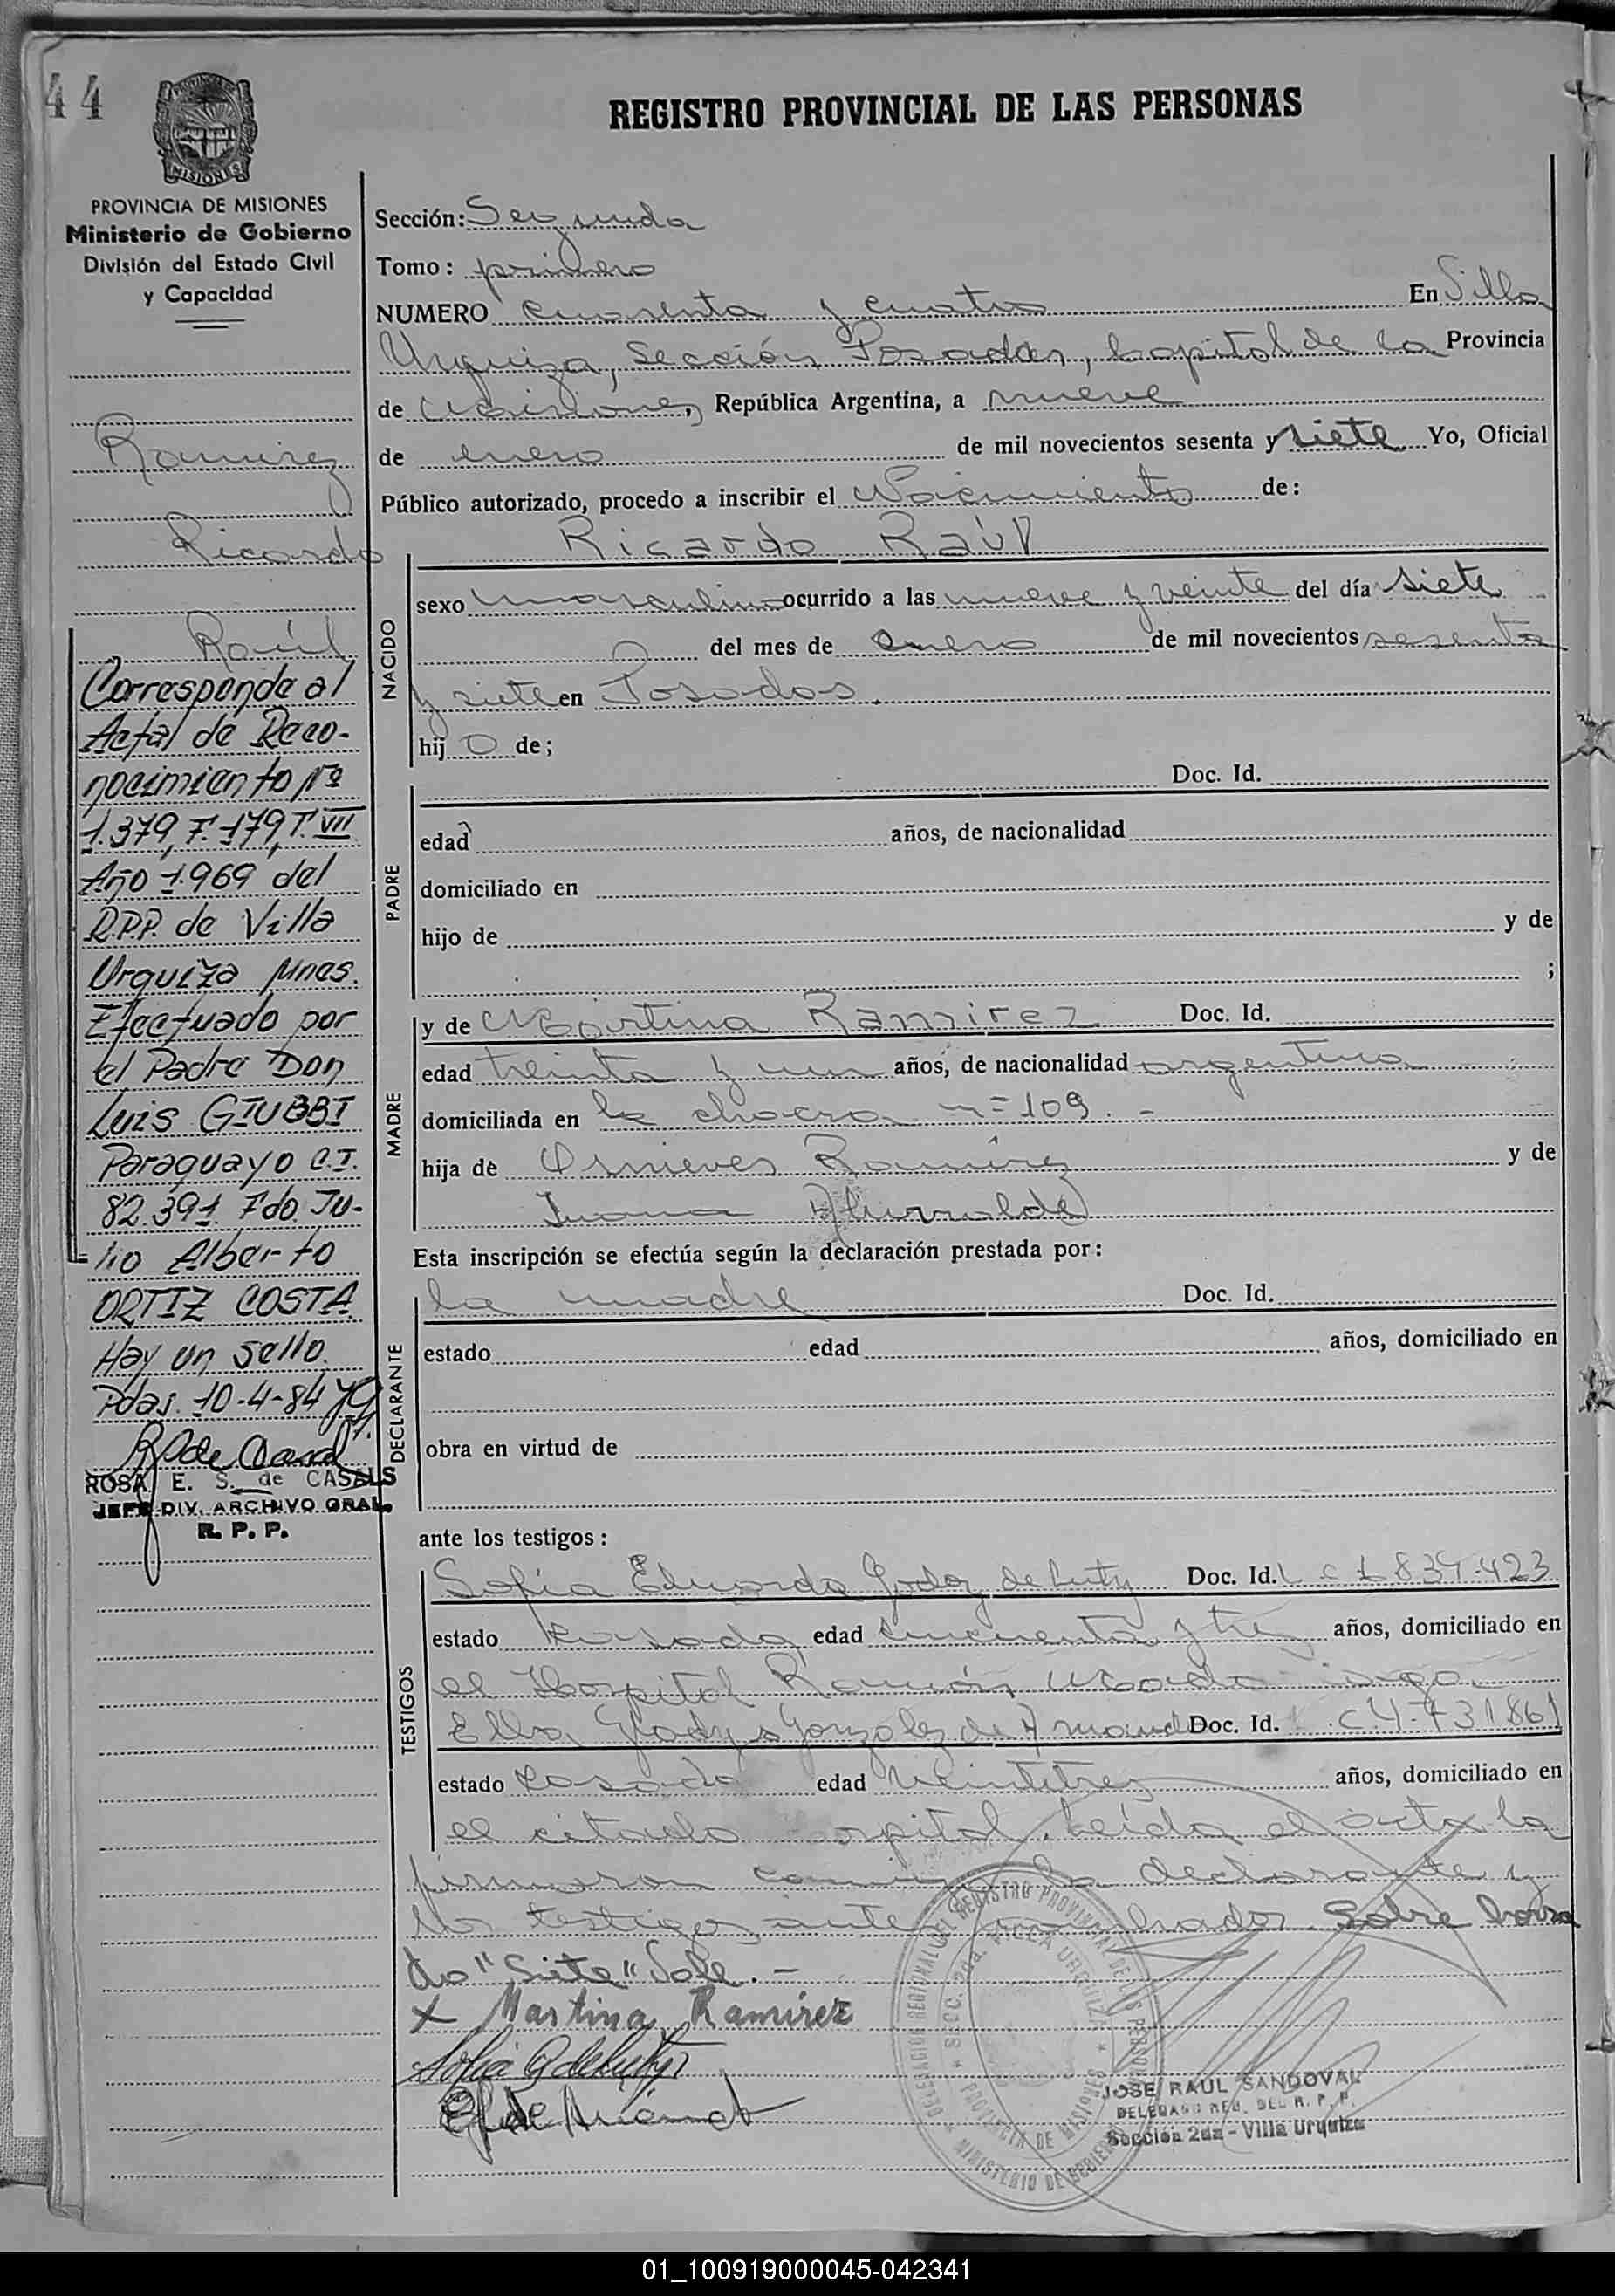 44
REGISTRO PROVINCIAL DE LAS PERSONAS
MISIONES
PROVINCIA DE MISIONES
Ministerio de Gobierno
División del Estado Civil
y Capacidad
Ramirez
Ricardo
Raúl
Corresponde al
Acta de Reco-
nocimiento Nº
1.379, F. 179, T. VII
Año 1.969 del
R.P.P. de Villa
Urquiza Mnes.
Efectuado por
el Padre Don
Luis GIUBBI
Paraguayo C.I.
82.391 Fdo. Ju-
lio Alberto
ORTIZ COSTA
Hay un sello.
Pdas. 10-4-84
ROSA E. S. de CASALS
JEFE DIV. ARCHIVO GRAL.
R. P. P.
Sección: Segunda
Tomo: primero
NUMERO cuarenta y cuatro En Villa
Urquiza, Sección Posadas, Capital de la Provincia
de Misiones, República Argentina, a nueve
de enero de mil novecientos sesenta y siete Yo, Oficial
Público autorizado, procedo a inscribir el Nacimiento de:
Ricardo Raúl
NACIDO
sexo masculino ocurrido a las nueve y veinte del día siete
del mes de enero de mil novecientos sesenta
y siete en Posadas.
hij o de;
PADRE
Doc. Id.
edad años, de nacionalidad
domiciliado en
hijo de y de
;
MADRE
y de Martina Ramirez Doc. Id.
edad treinta y un años, de nacionalidad argentina
domiciliada en la chacra nº 109. -
hija de Ramirez y de
Juana
Esta inscripción se efectúa según la declaración prestada por:
DECLARANTE
la madre Doc. Id.
estado edad años, domiciliado en
obra en virtud de
ante los testigos:
TESTIGOS
Sofia Eduarda Godoy de Doc. Id. L C 1.837.423
estado casada edad cincuenta y tres años, domiciliado en
el Hospital Ramón Madariaga
Elba Gladys Gonzalez de Doc. Id. C.4.731861
estado casada edad veintitres años, domiciliado en
el citado hospital. Leída el acta la
firmaron conmigo la declarante y
los testigos antes nombrados. Sobre borra
do "Siete" Vale. -
x Martina Ramírez
DELEGACION REGIONAL DEL REGISTRO PROVINCIAL DE LAS PERSONAS
SECC. 2da. VILLA URQUIZA
PROVINCIA DE MISIONES
MINISTERIO DE GOBIERNO
JOSE RAUL SANDOVAL
DELEGADO REG. DEL R. P. P.
Sección 2da - Villa Urquiza
01_100919000045-042341